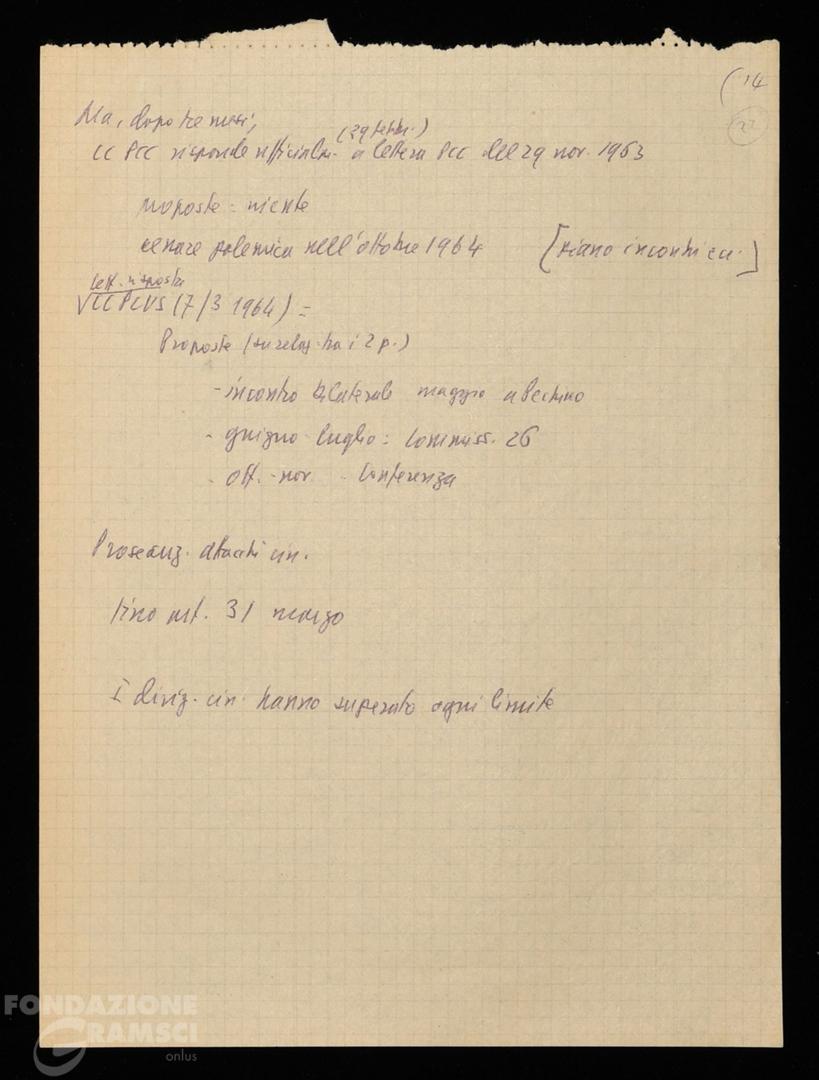 (14
22
Ma, dopo tre mesi,
(29 febbr.)
CC PCC risponde ufficialm. a lettera PCC del 29 nov. 1963
proposte = niente
cessare polemica nell'ottobre 1964 [piano incontri ecc.]
lett. risposta
CC PCUS (7/3 1964) =
Proposte (su relaz. tra i 2 p.)
- incontro bilaterale maggio a Pechino
- giugno-luglio: commiss. 26
- ott.-nov. - Conferenza
Prosecuz. attacchi cin.
fino art. 31 marzo
I dirig. cin. hanno superato ogni limite
FONDAZIONE
GRAMSCI
onlus